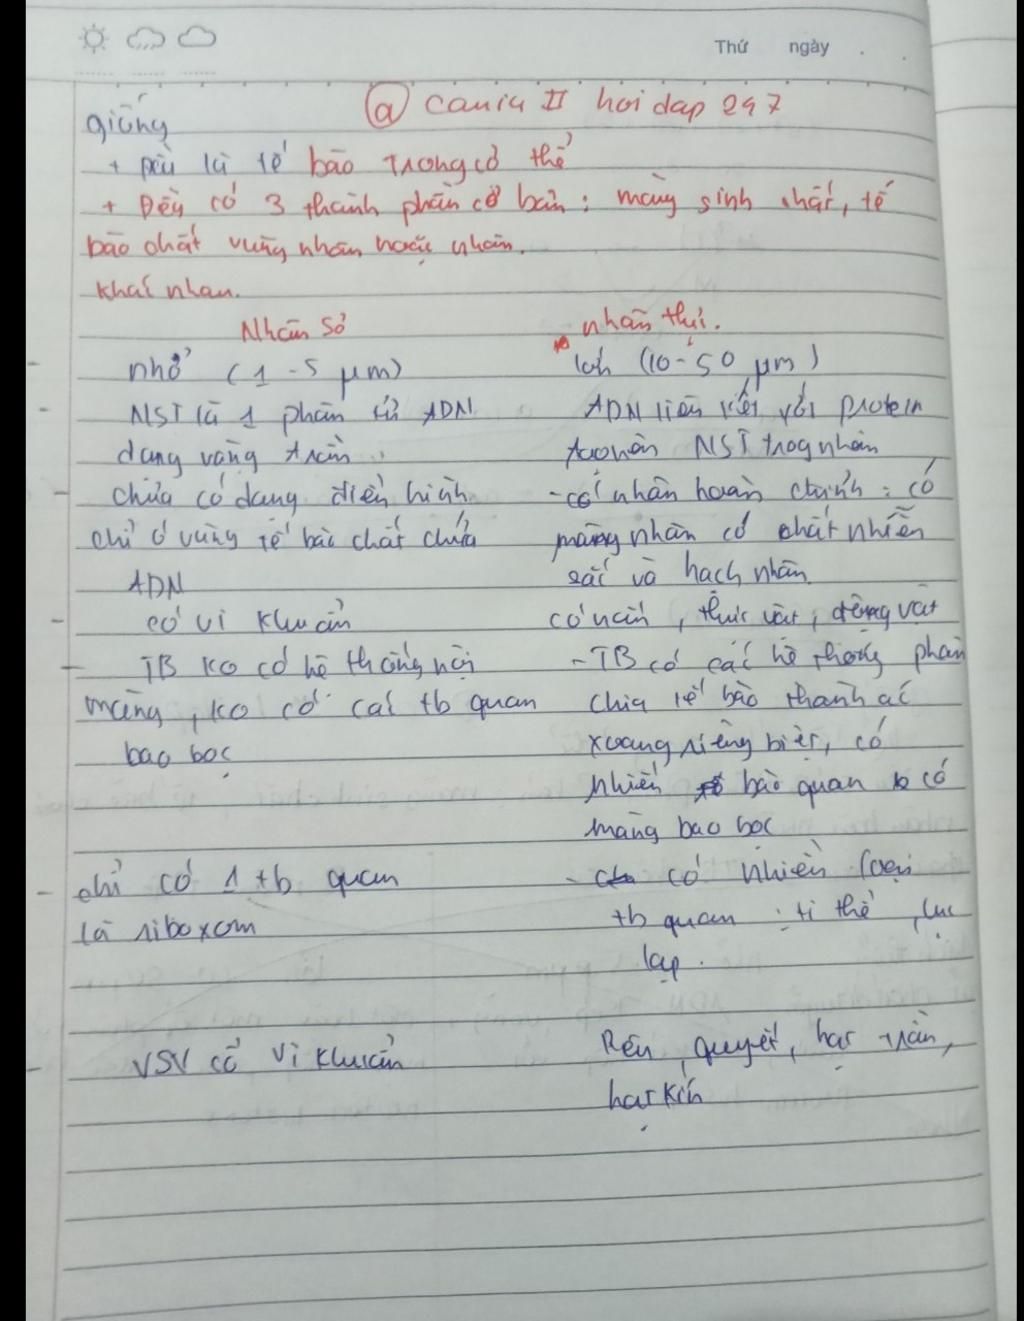 Thứ ngày .
@ caniu II hoidap 247
giống
+ Đều là tế bào trong cơ thể
+ Đều có 3 thành phần cơ bản : màng sinh chất, tế
bào chất vùng nhân hoặc nhân.
khác nhau.
Nhân sơ nhân thực.
nhỏ (1-5 µm) lớn (10-50 µm)
NST là 1 phân tử ADN ADN liên kết với Protein
dạng vòng trần tạo nên NST trog nhân
chưa có dạng điển hình - có nhân hoàn chỉnh : có
chỉ ở vùng tế bào chất chứa màng nhân có chất nhiễm
ADN sắc và hạch nhân
có vi khuẩn có nấm, thực vật, động vật
TB ko có hệ thống nội - TB có các hệ thống phân
màng, ko có các tb quan chia tế bào thành các
bao bọc xoang riêng biệt, có
nhiều bào quan có
màng bao bọc
chỉ có 1 tb quan - có nhiều loại
là riboxom tb quan : ti thể, lục
lạp.
VSV cổ vi khuẩn Rêu, quyết, hạt trần,
hạt kín